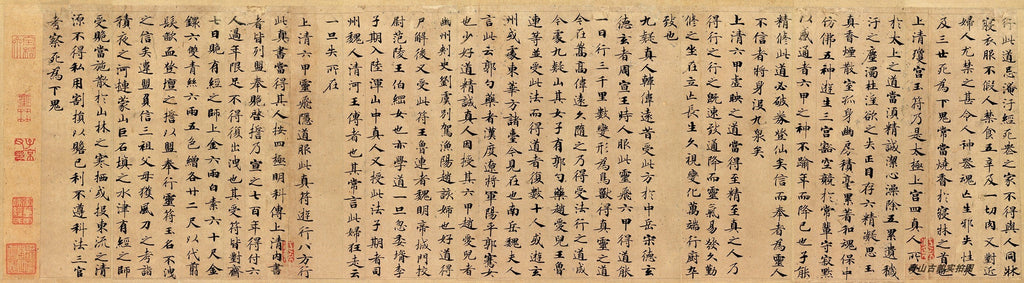 行此道忌淹汙經死喪之家不得與人同牀
寢衣服不假人禁食五辛及一切肉又對近
婦人尤禁之甚令人神喪魂亡生邪失性災
及三世死為下鬼常當燒香於寢牀之首也
上清瓊宮玉符乃是太極上宮四真人所受
於太上之道當須精誠潔心澡除五累遺穢
汙之塵濁杜淫欲之失正目存六精凝思玉
真香煙散室孤身幽房積毫累著和魂保中
仿佛五神遊生三宮豁空競於常輩守寂默
以感通者六甲之神不踰年而降己也子能
精修此道必破券登仙矣信而奉者為靈人
不信者將身沒九泉矣
上清六甲虛映之道當得至精至真之人乃
得行之行之既速致通降而靈氣易發久勤
修之坐在立亡長生久視變化萬端行廚卒
致也
九疑真人韓偉遠昔受此方於中岳宋德玄
德玄者周宣王時人服此靈飛六甲得道能
一日行三千里數變形為鳥獸得真靈之道
今在嵩高偉遠久隨之乃得受法行之道成
今處九疑山其女子有郭勺藥趙愛兒王魯
連等並受此法而得道者復數十人或遊玄
州或處東華方諸臺今見在也南岳魏夫人
言此云郭勺藥者漢度遼將軍陽平郭騫女
也少好道精誠真人因授其六甲趙愛兒者
幽州刺史劉虞別駕漁陽趙該婦也好道得
尸解後又受此符王魯連者魏明帝城門校
尉范陵王伯綱女也亦學道一旦忽委壻李
子期入陸渾山中真人又授此法子期者司
州魏人清河王傅也其常言此婦狂走云
一旦失所在
上清六甲靈飛隱道服此真符遊行八方行
此真書當得其人按四極明科傳上清內書
者皆列盟奉跪啓誓乃宣之七百年得付六
人過年限足不得復出洩也其受符皆對齋
七日跪有經之師上金六兩白素六十尺金
鐶六雙青絲六兩五色繒各廿二尺以代翦
髮歃血登壇之誓以盟奉行靈符玉名不洩
之信矣違盟負信三祖父母獲風刀之考諸
積夜之河摙蒙山巨石填之水津有經之師
受貺當施散於山林之寒栖或投東流之清
源不得私用割損以贍己利不遵科法三官
考察死為下鬼